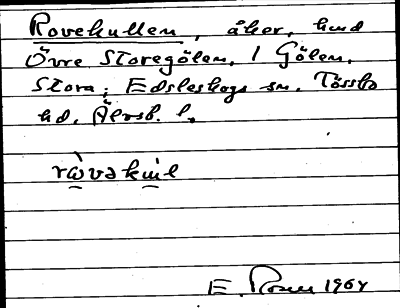 Rovekullen, åker, hmd
Övre Storegölen, / Gölen,
Stora; Edsleskogs sn. Tössbo
hd. Älvsb. l.
E. Rosen 1964